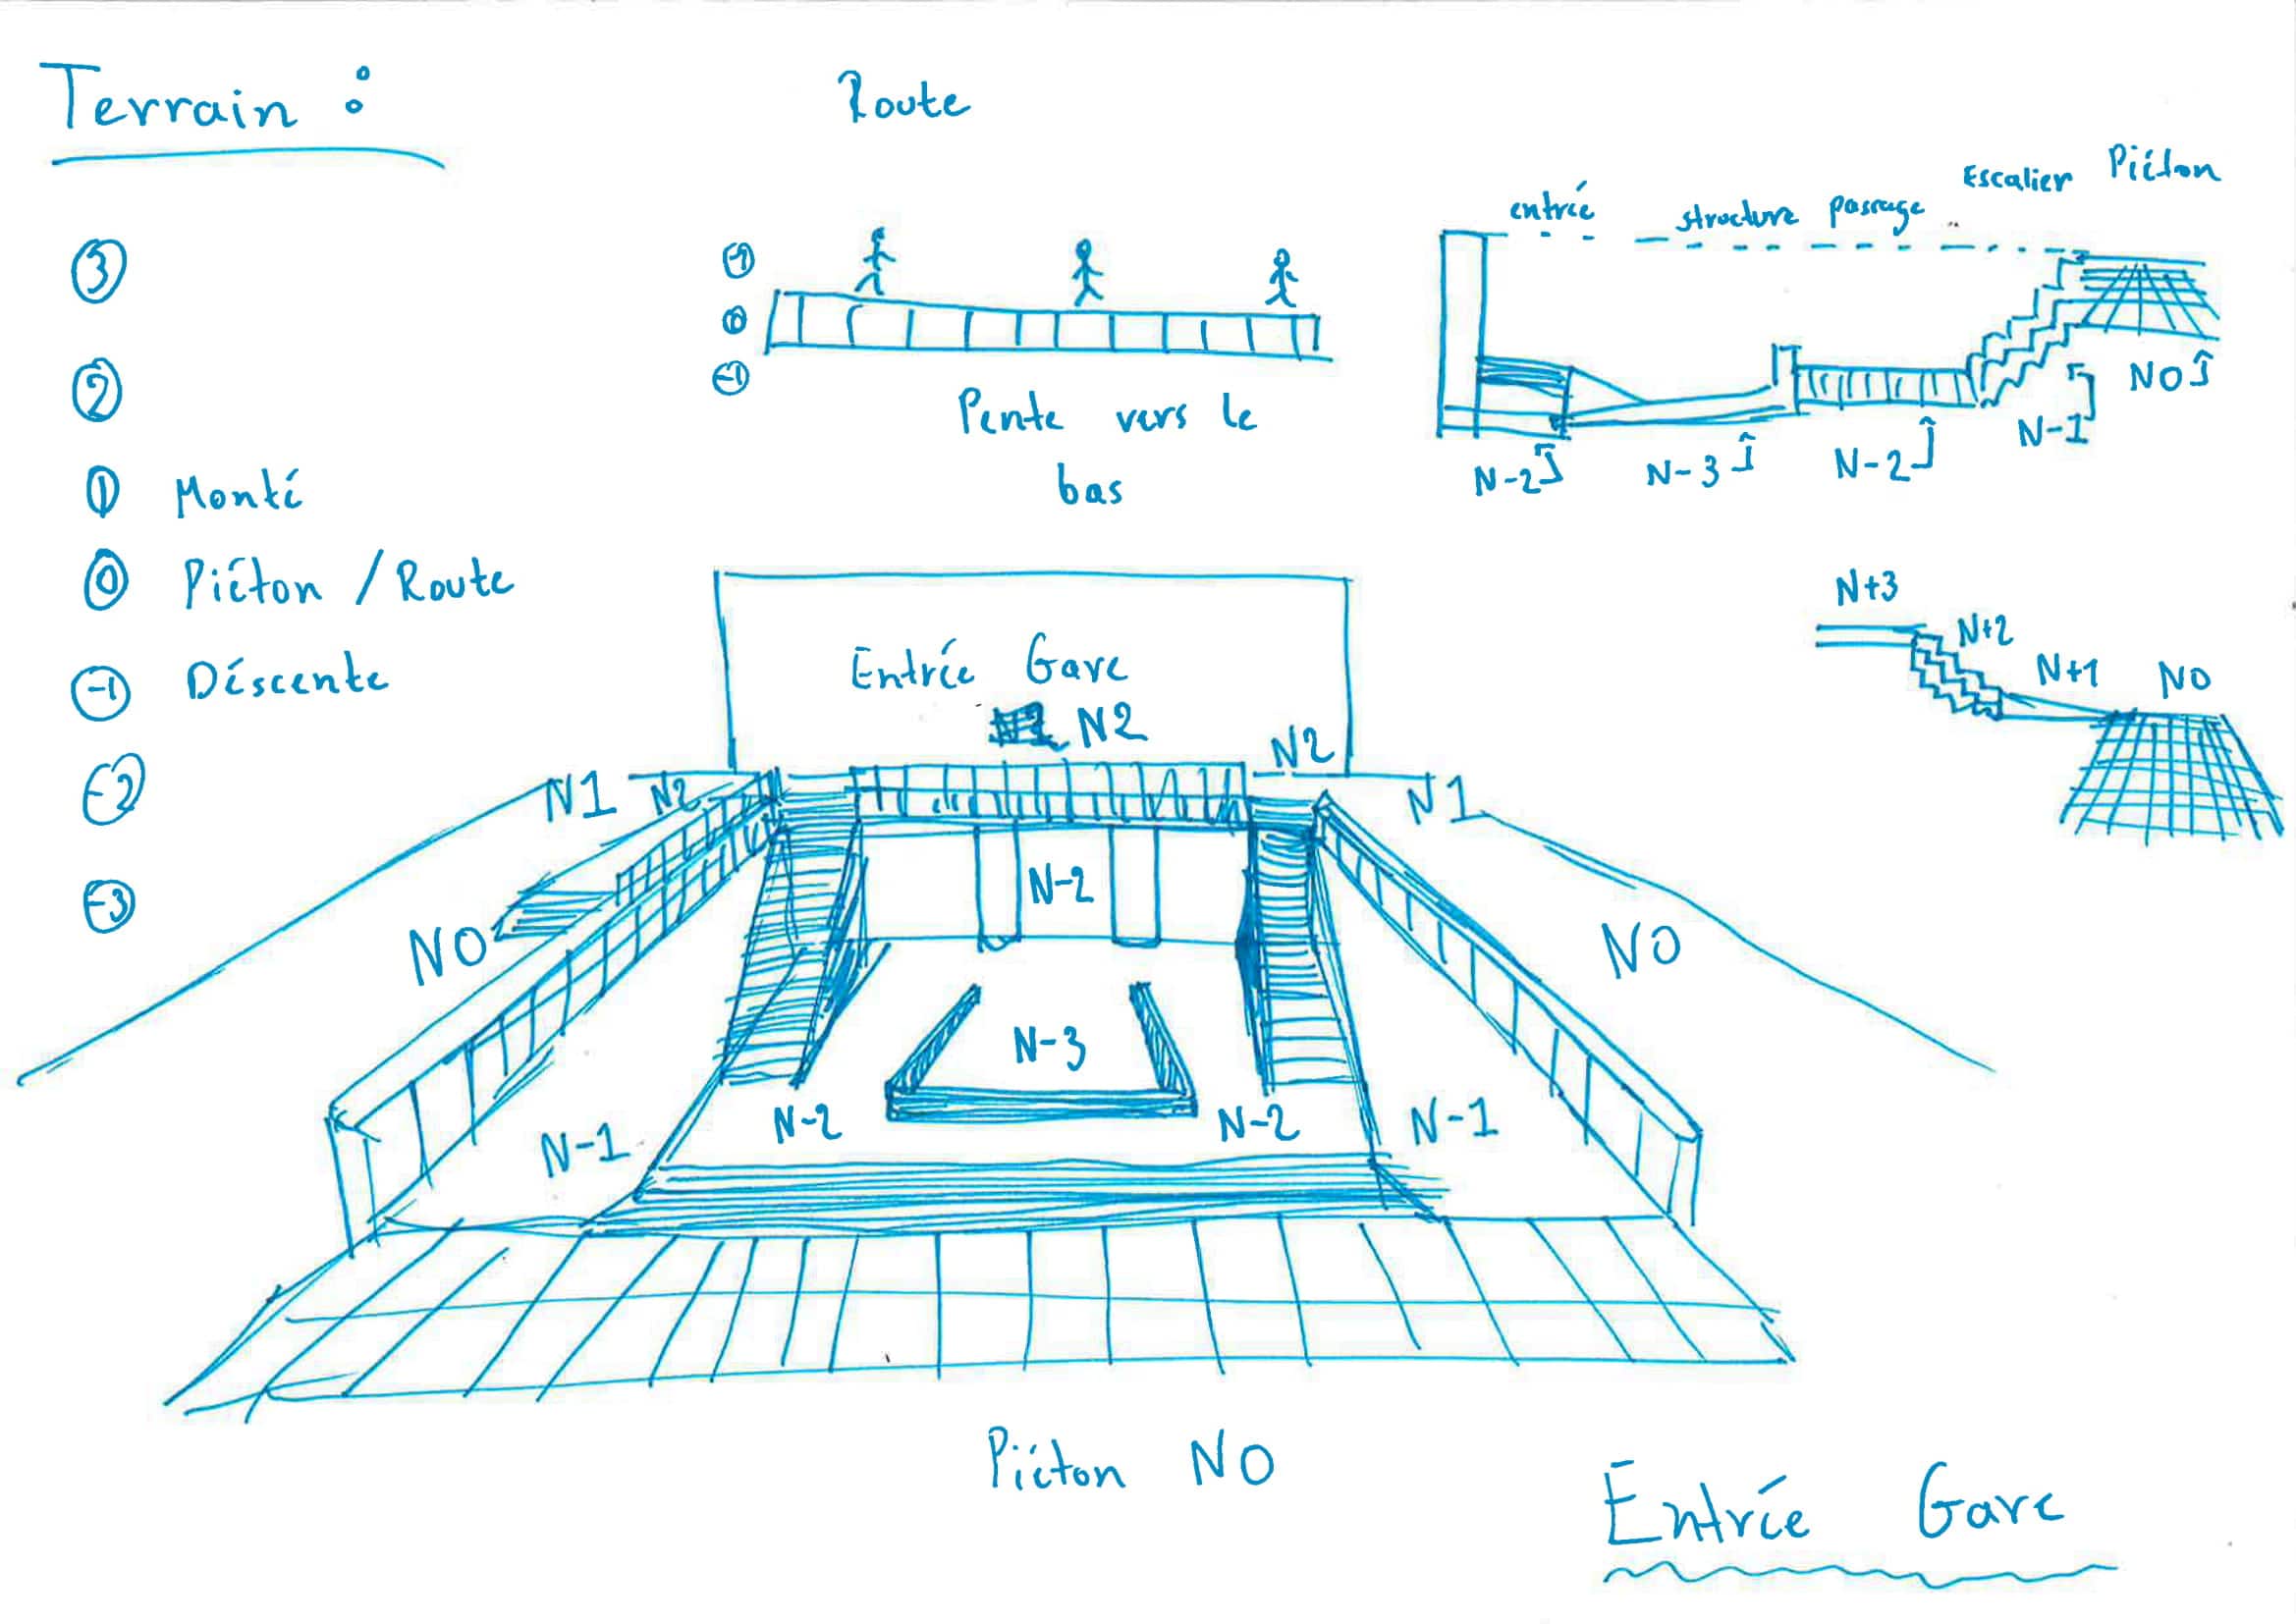 Terrain :
3
2
1 Monté
0 Piéton / Route
-1 Déscente
-2
-3
Route
1
0
-1
Pente vers le
bas
entrée structure passage Escalier Piéton
N-2 N-3 N-2 N-1 N0
N+3
N+2
N+1 N0
Entrée Gare
N2
N2
N1 N2
N1
N-2
N0
N0
N-3
N-2
N-2
N-1
N-1
Piéton N0
Entrée Gare